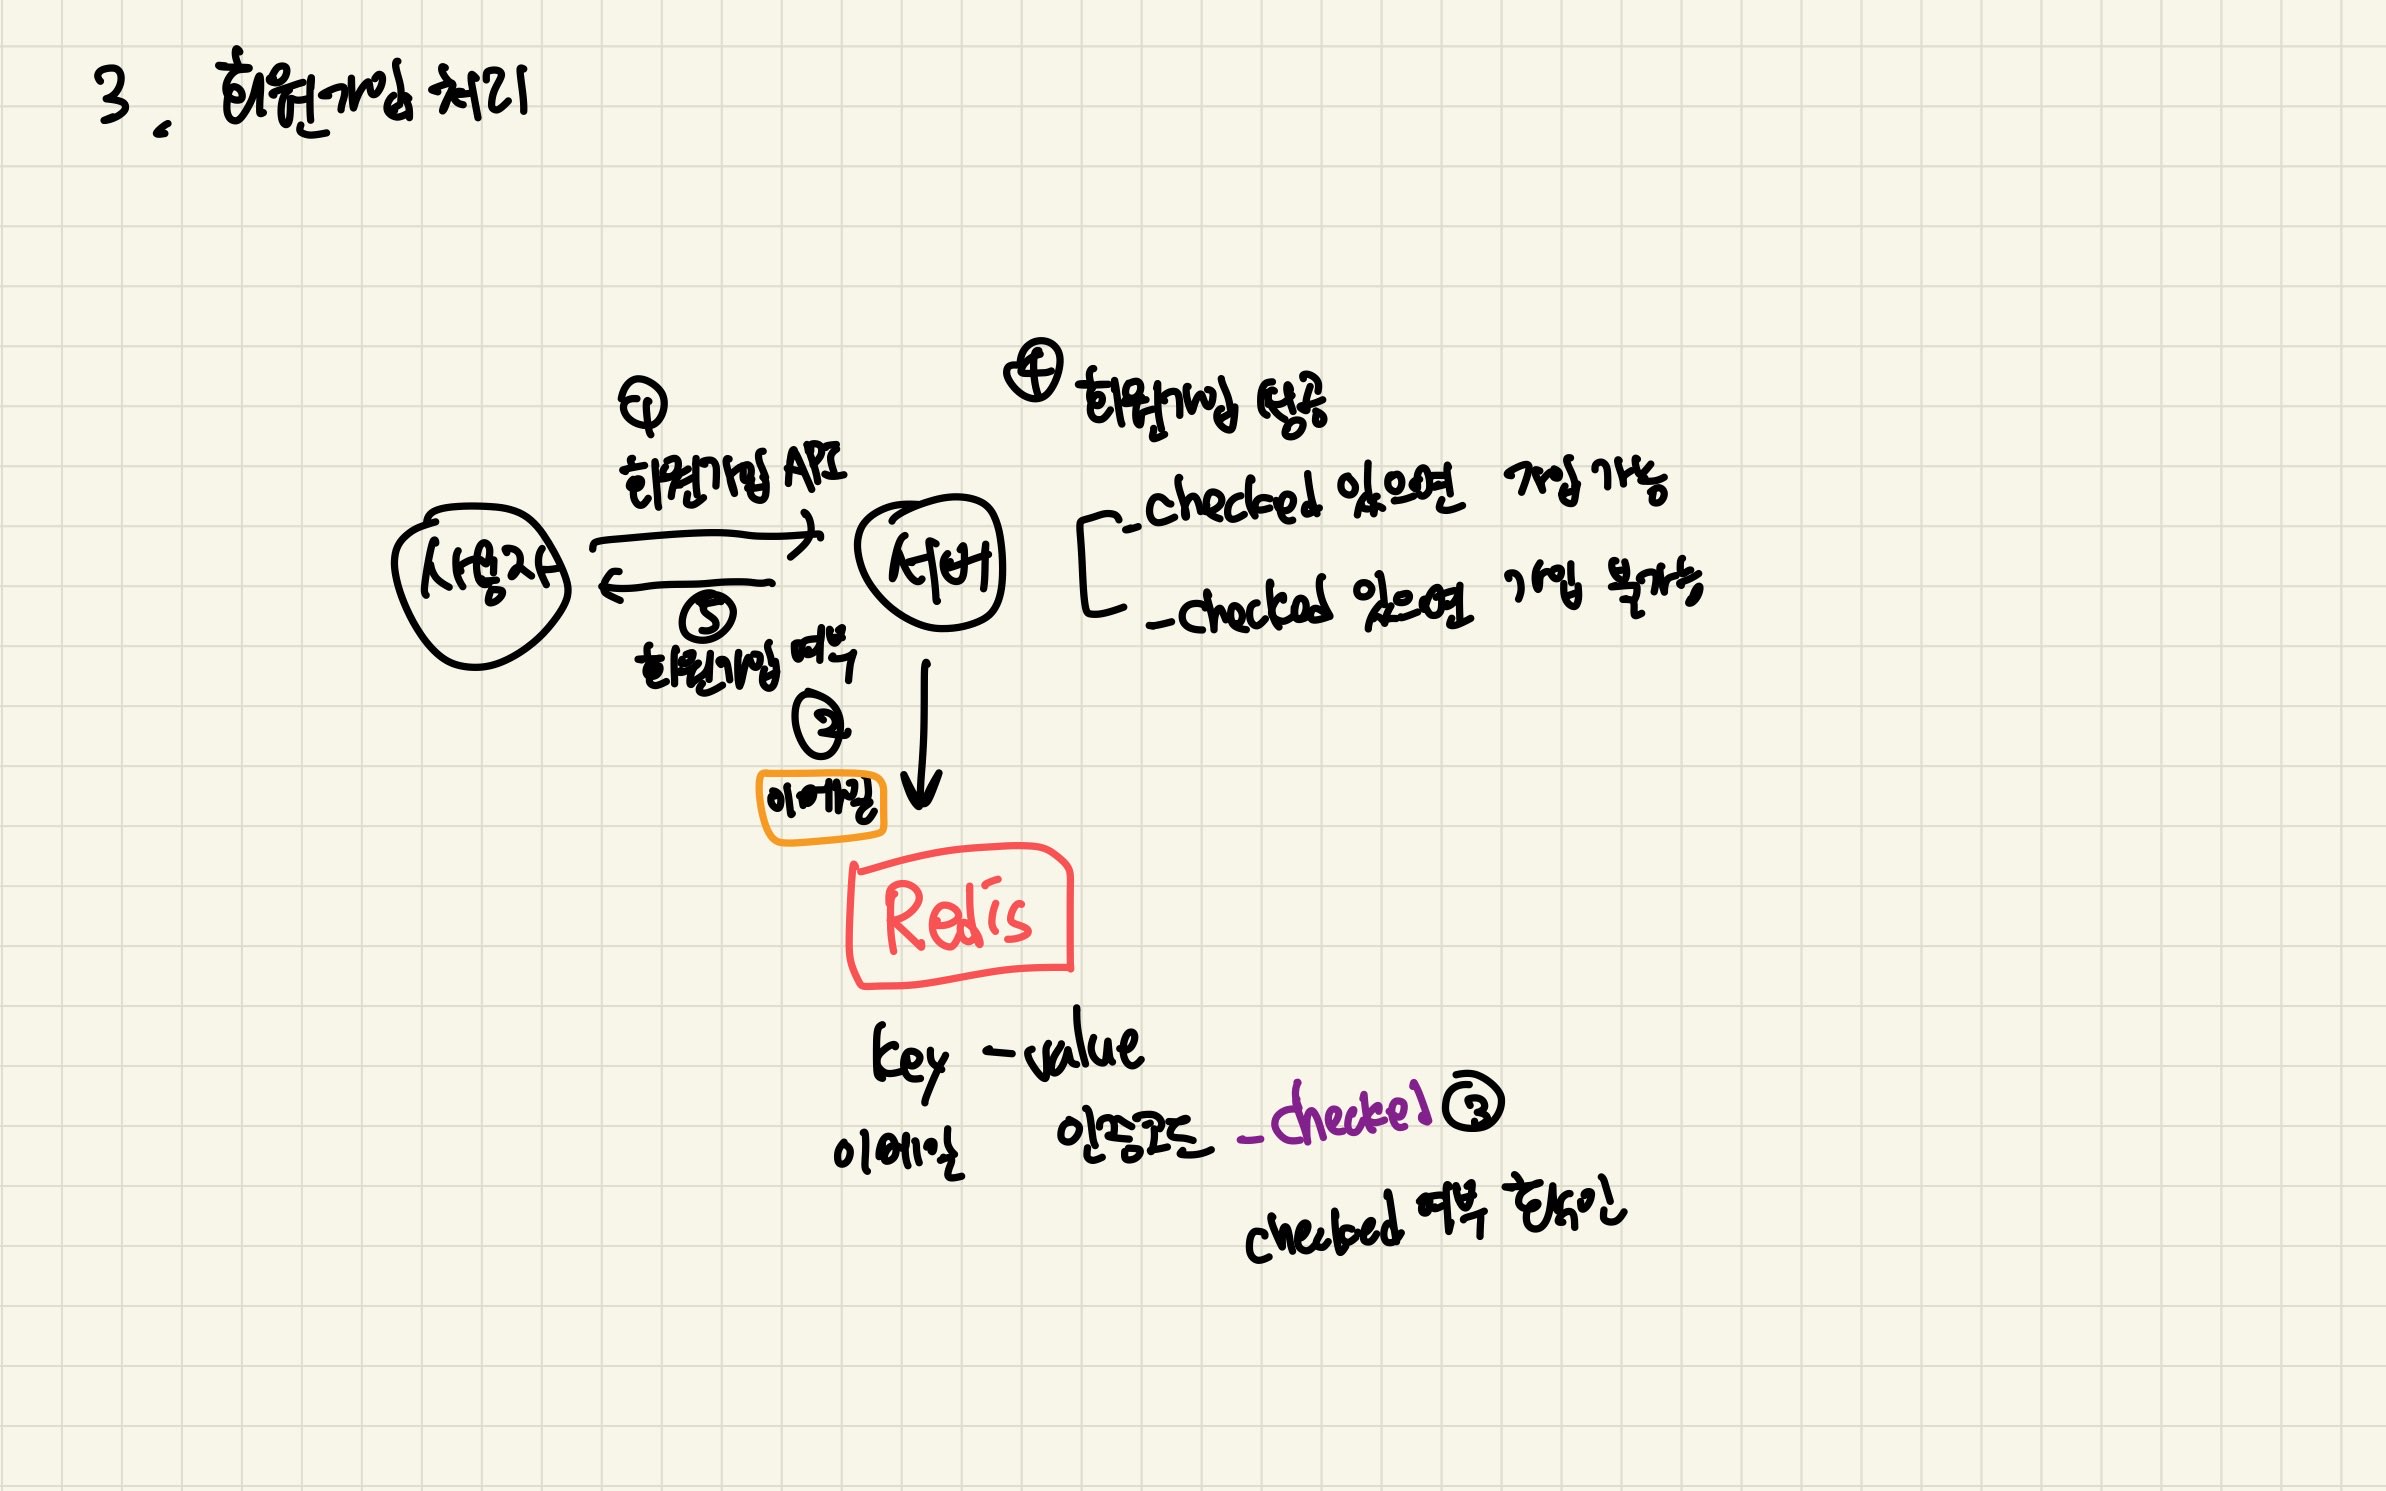 3. 회원가입 처리
④
회원가입 성공
①
회원가입 API
_checked 있으면 가입 가능
사용자
서버
_checked 없으면 가입 불가능
⑤
회원가입 여부
②
이메일
Redis
key - value
이메일 인증코드 _checked ③
checked 여부 확인